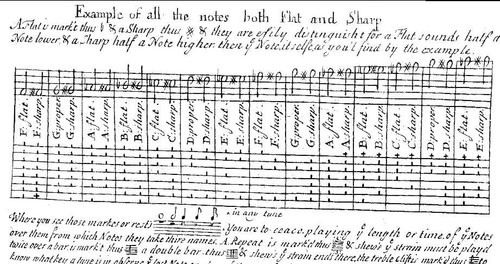 Example of all the notes both Flat and Sharp
A Flat is mark't thus & a Sharp thus & they are esily distinguisht for a Flat sounds half a
Note lower & a Sharp half a Note higher then yͤ Note it self, as you'l find by the example.
F. flat. F. sharp. G. proper. G. sharp. A. flat. A. sharp. B. flat. B. sharp. C. flat. C. sharp. D. proper. D. sharp. E. flat. E. sharp. F. flat. F. sharp. G. proper. G. sharp. A. flat. A. sharp. B. flat. B. sharp. C. flat. C. sharp. D. proper. D. sharp. E. flat. E. sharp.
Where you see those markes or rests in any tune you are to ceace playing yͤ length or time of yͤ Notes
over them from which Notes they take thire names. A Repeat is mark'd thus & shew's yͤ strain must be play'd
twice over a bar is mark't thus a double bar thus & shew's yͤ strain ends there, the treble cliff is mark'd thus to
know what key a tune is in observe yͤ last Note